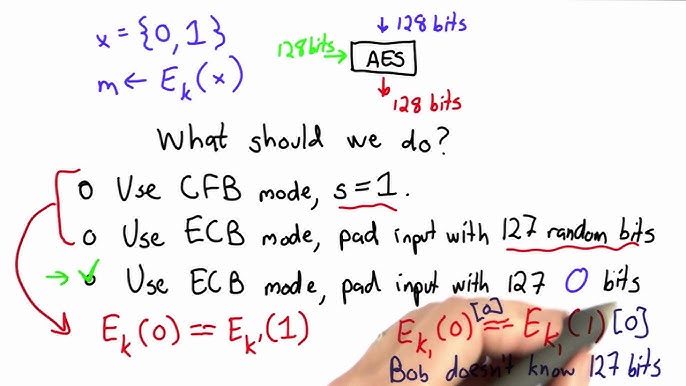 x = {0,1}
m ← E_k(x)
128 bits
128 bits
AES
128 bits
What should we do?
Use CFB mode, s=1.
Use ECB mode, pad input with 127 random bits
Use ECB mode, pad input with 127 0 bits
E_k(0) == E_k'(1)
E_k,(0)[0] == E_k,(1)[0]
Bob doesn't know 127 bits